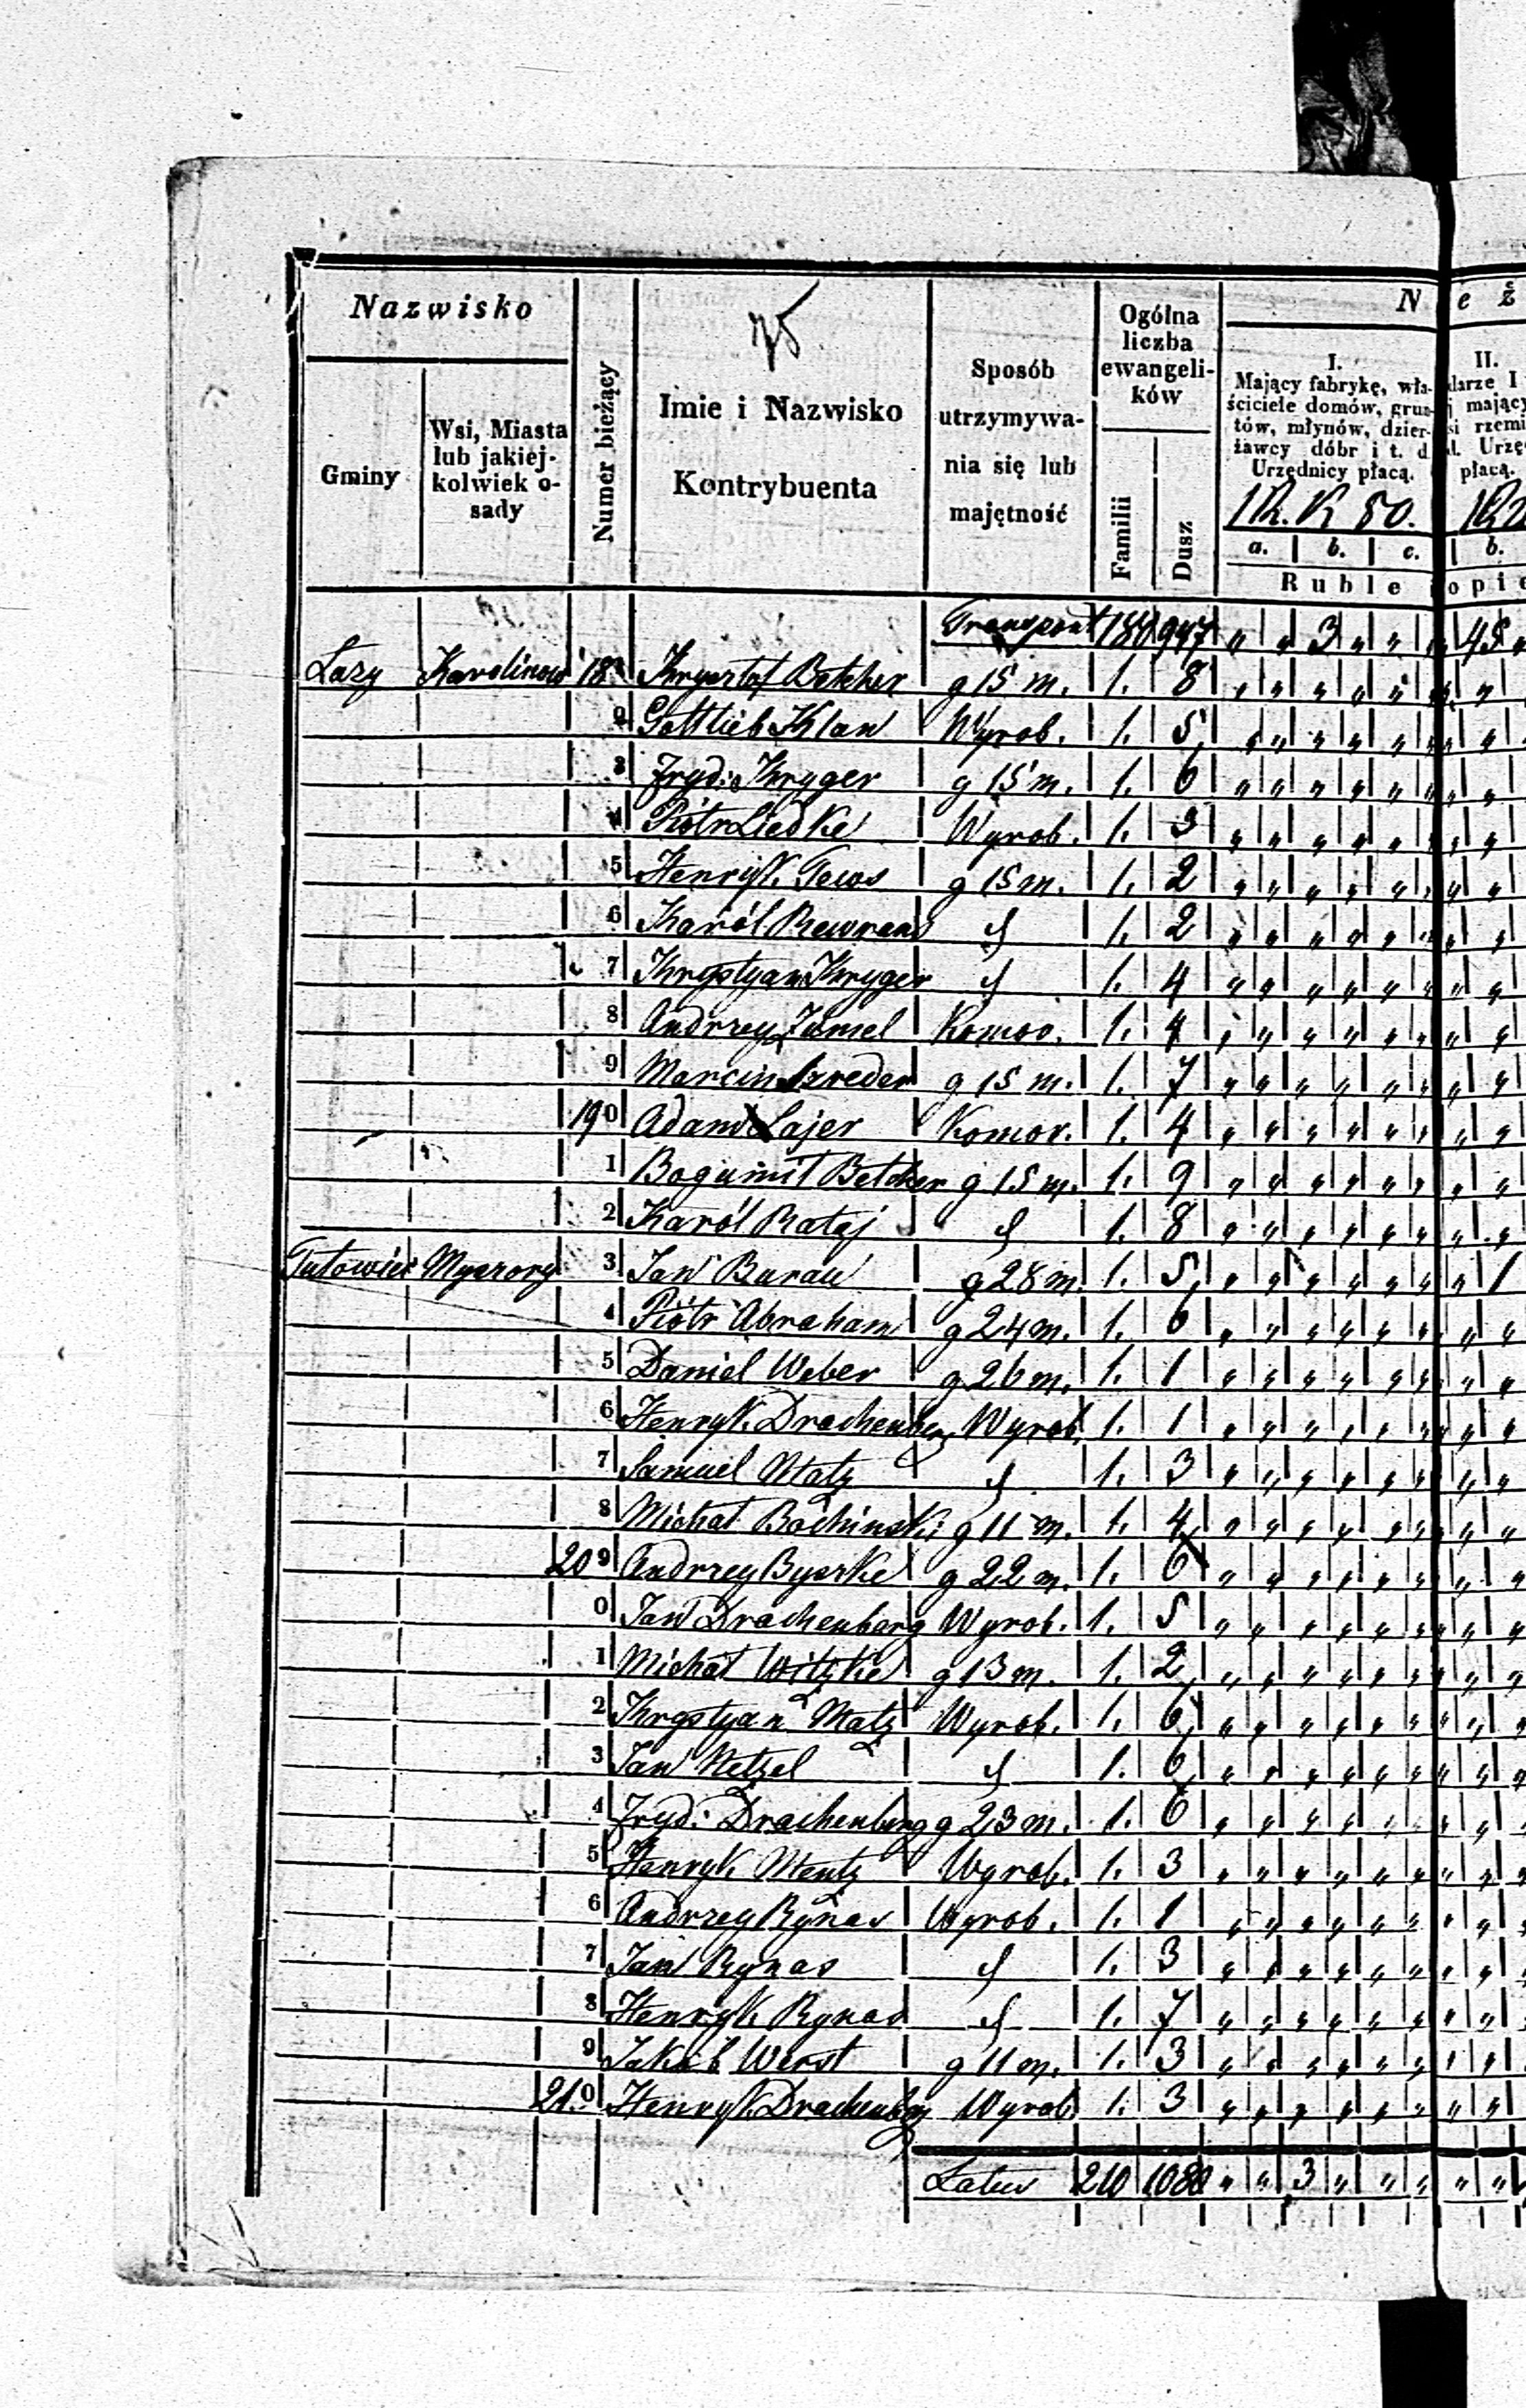 Nazwisko
Gminy
Wsi, Miasta
lub jakiej-
kolwiek o-
sady
Numer bieżący
Imie i Nazwisko
Kontrybuenta
Sposób
utrzymywa-
nia się lub
majętność
Ogólna
liczba
ewangeli-
ków
Familii
Dusz
N e ż
I.
Mający fabrykę, wła-
ściciele domów, grun-
tów, młynów, dzier-
żawcy dóbr i t. d.
Urzędnicy płacą.
1R. K 50.
II.
płacą.
a. b. c. b.
Ruble kopie
Transport 180 947 " " 3 " " " 45 "
Lazy Karolinow 18 Krysztof Betcher g 15 m. 1. 8
2 Gottlieb Klan Wyrob. 1. 5
3 Fryd: Kryger g 15 m. 1. 6
4 Piotr Liedke Wyrob. 1. 3
5 Henryk Tews g 15 m. 1. 2
6 Karól 1. 2
7 Krystyan Kryger 1. 4
8 Andrzey Komor. 1. 4
9 Marcin Szreder g 15 m. 1. 7
190 Adam Lajer Komor. 1. 4
1 Bogumił Betcher g 15 m. 1. 9
2 Karól Rataj 1. 8
Tutowice Myszory 3 Jan Burau g 28 m. 1. 5 1
4 Piotr Abraham g 24 m. 1. 6
5 Daniel Weber g 26 m. 1. 1
6 Henryk Drachenberg Wyrob. 1. 1
7 Samuel Matz 1. 3
8 Michał Bochinski g 11 m. 1. 4
20 9 Andrzey Byszke g 22 m. 1. 6
0 Jan Drachenberg Wyrob. 1. 5
1 Michał Witzke g 13 m. 1. 2
2 Krystyan Matz Wyrob. 1. 6
3 Jan Wetzel 1. 6
4 Fryd: Drachenberg g 23 m. 1. 6
5 Henryk Mentz Wyrob. 1. 3
6 Andrzey Rynas Wyrob. 1. 1
7 Jan Rynas 1. 3
8 Henryk Rynas 1. 7
9 Jakub Werst g 11 m. 1. 3
210 Henryk Drachenberg Wyrob 1. 3
Latus 210 1080 " " 3 " " " " "